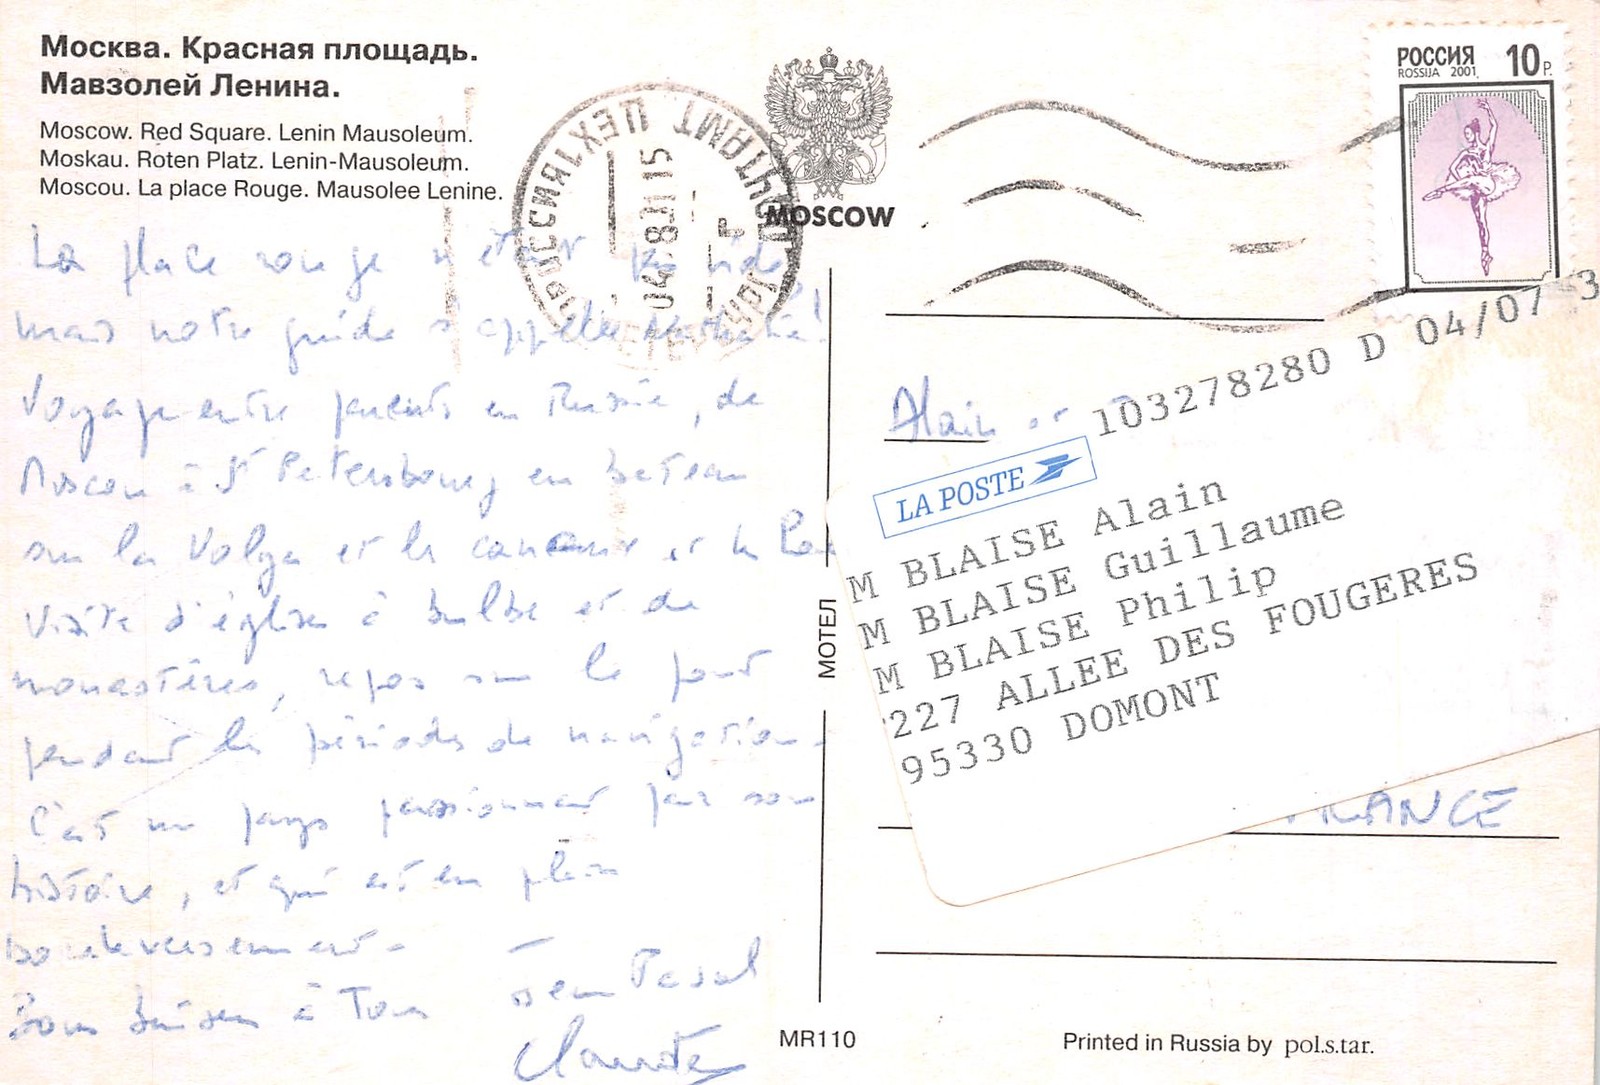 Москва. Красная площадь.
Мавзолей Ленина.
Moscow. Red Square. Lenin Mausoleum.
Moskau. Roten Platz. Lenin-Mausoleum.
Moscou. La place Rouge. Mausolee Lenine.
La place rouge n'était pas vide
mais notre guide s'appelle Nathalie!
Voyage entre parents en Russie, de
Moscou à St Petersbourg en bateau
sur la Volga et les canaux et la
Visite d'églises à bulbe et de
monastères, repos sur le pont
pendant les périodes de navigation.
C'est un pays passionnant par son
histoire, et qui est en plein
bouleversement.
Bons baisers à Tous
Jean Pascal
Claudie
MOSCOW
РОССИЯ 10 Р.
ROSSIJA 2001
РОССИЯ ЦЕХ ПОЧТАМТ
15
103278280 D 04/07 3
Alain
LA POSTE
M BLAISE Alain
M BLAISE Guillaume
M BLAISE Philip
227 ALLEE DES FOUGERES
95330 DOMONT
FRANCE
МОТЕЛ
MR110
Printed in Russia by pol.s.tar.